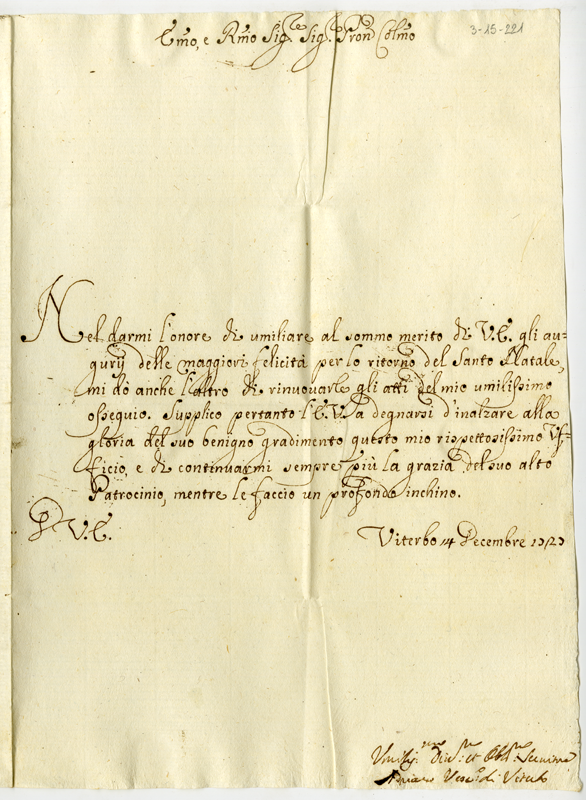 3-15-221
Emo, e Rmo Sig.re Sig.re Pron Colmo
Nel darmi l'onore di umiliare al sommo merito di V.E. gli au-
gurij delle maggiori felicità per lo ritorno del Santo Natale,
mi dò anche l'altro di rinuovarle gli atti del mio umilissimo
ossequio. Supplico pertanto l'E.V. a degnarsi d'inalzare alla
gloria del suo benigno gradimento questo mio rispettosissimo Vf-
ficio, e di continuarmi sempre più la grazia del suo alto
Patrocinio, mentre le faccio un profondo inchino.
D V.E.
Viterbo 14 Decembre 1727
Vmiliss.mo Div.mo et Obl.mo Servitore
Adriano Vesc.o di Viterbo